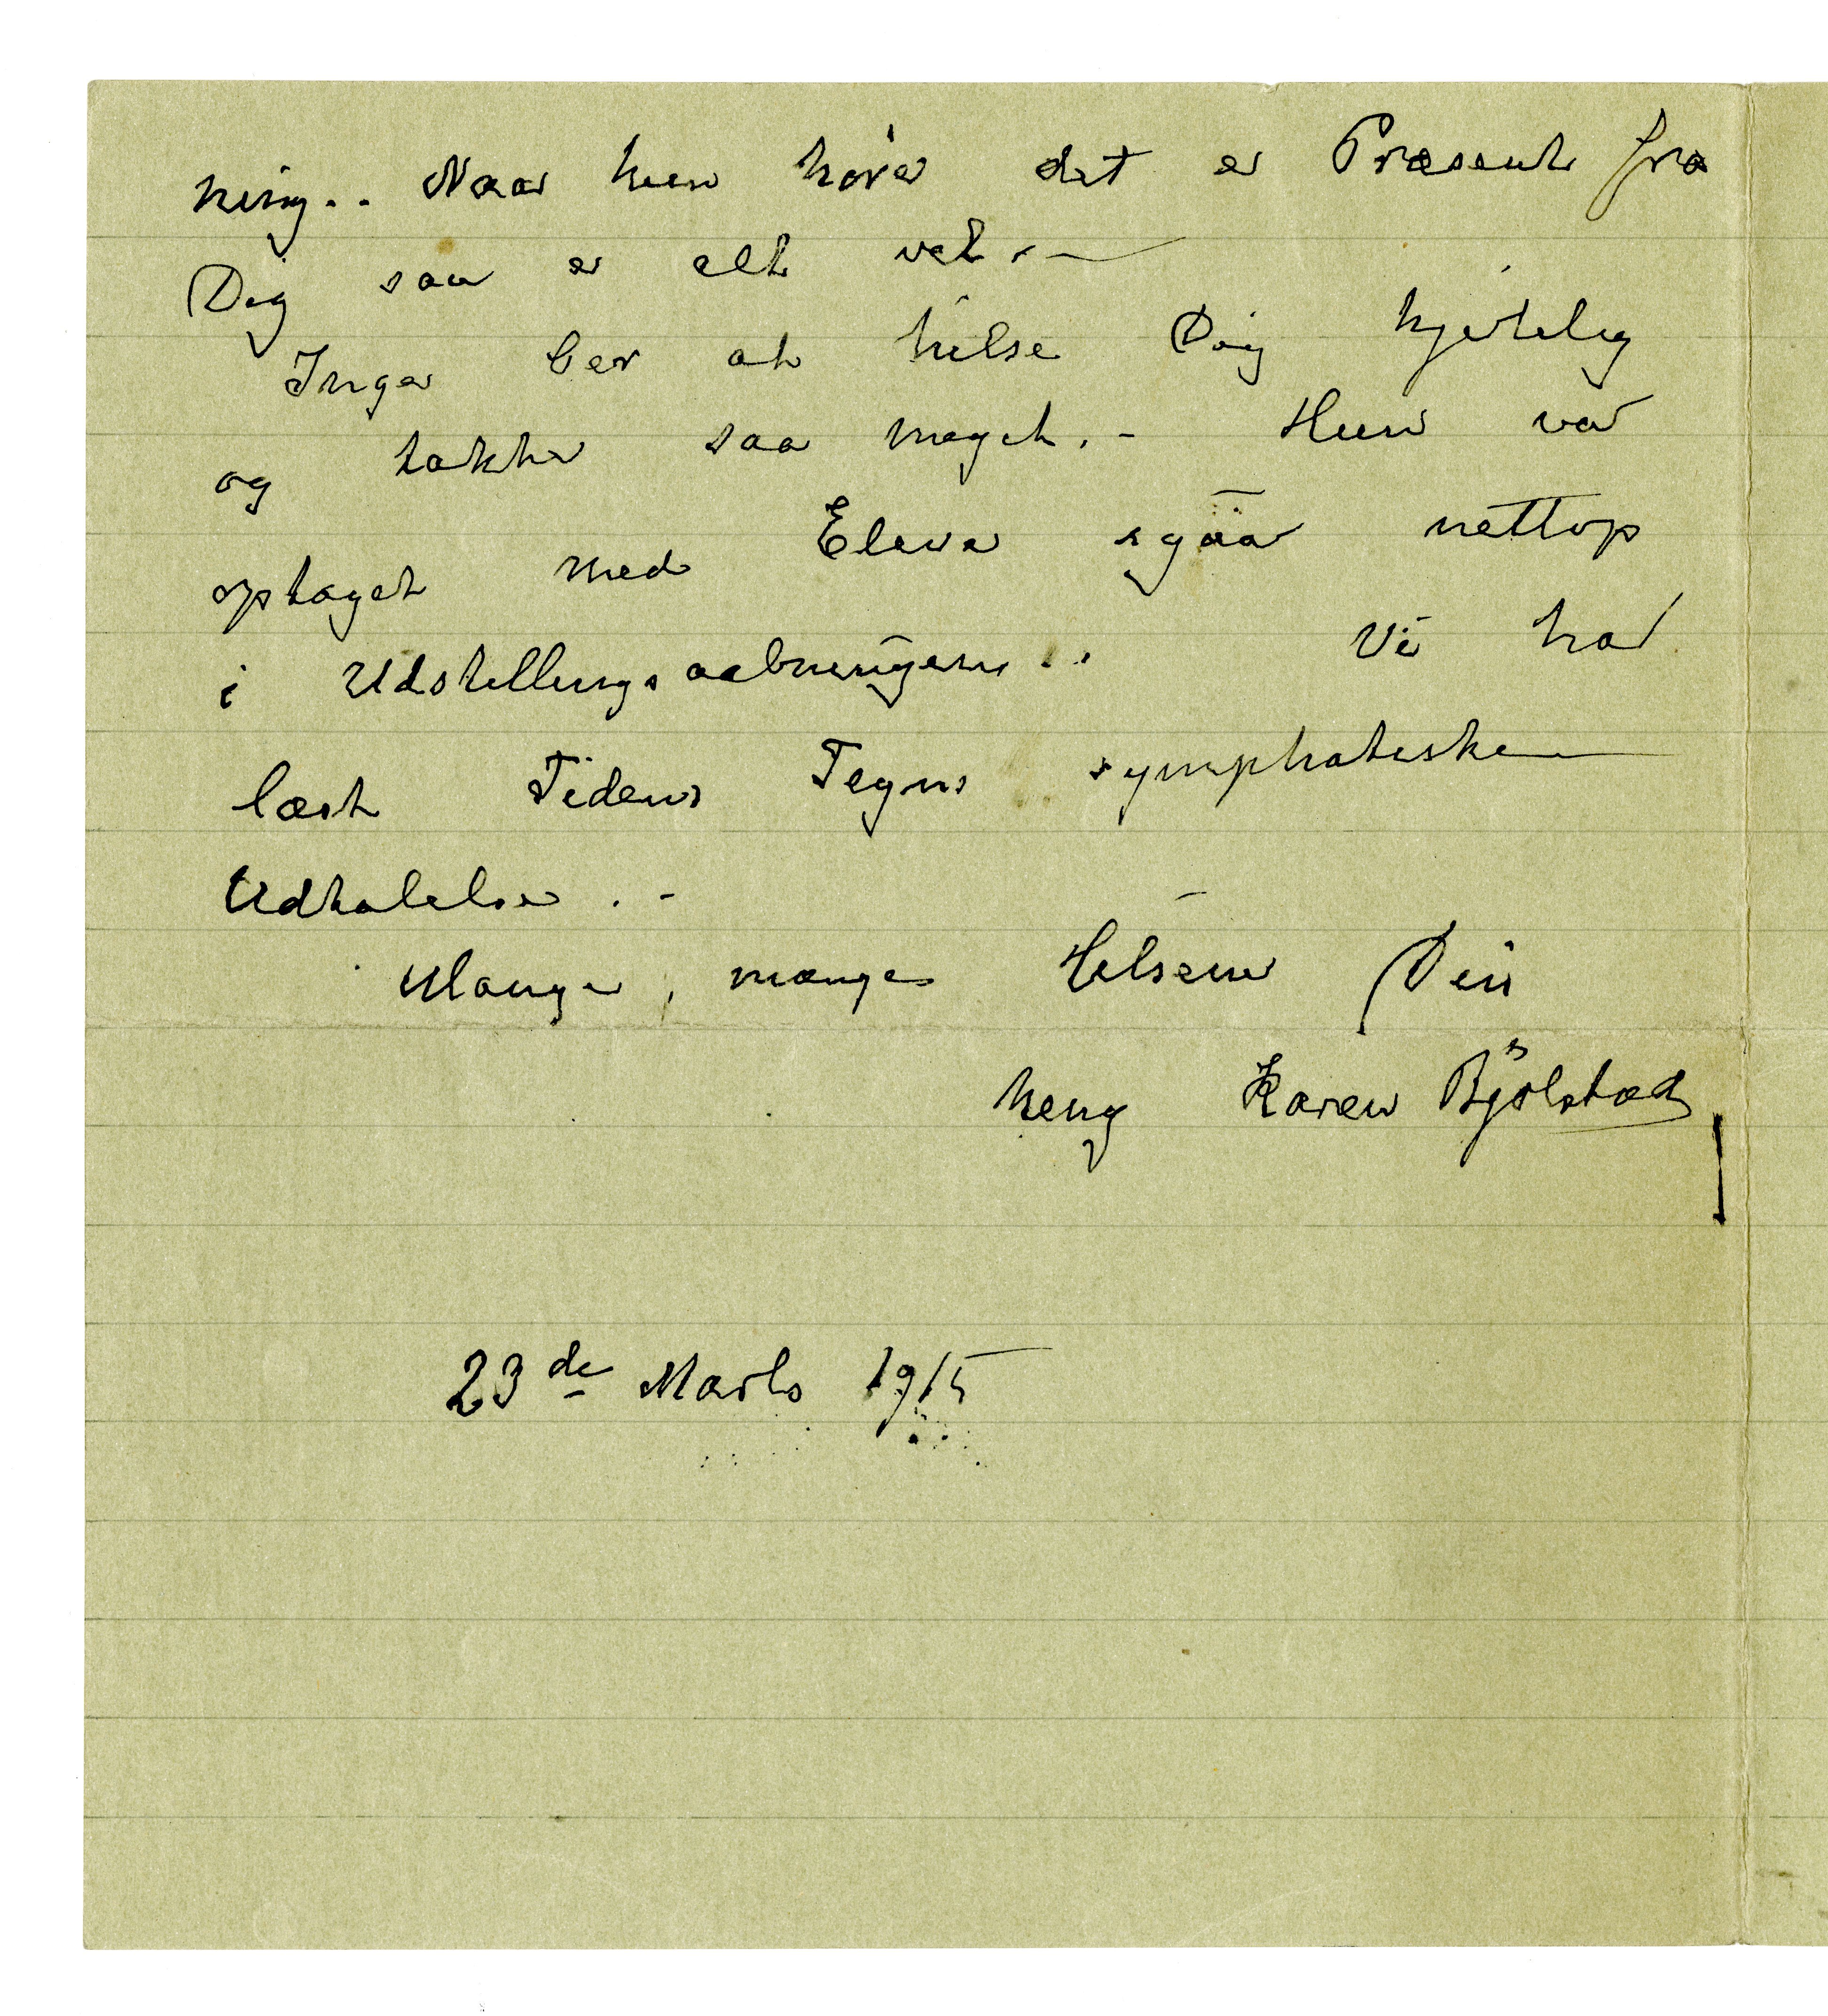 ning.. Naar hun hører det er Præsent fra
Dig saa er alt vel. –
Inger ber at hilse Dig hjertelig
og takker saa meget. – Hun var
optaget med Elever igaar nettop
i Udstillingsaabningen..
Vi har
læst Tidens Tegns symphatiske
Udtalelse. –
Mange, mange Hilsener Din
heng Karen Bjølstad
23de Marts 1915